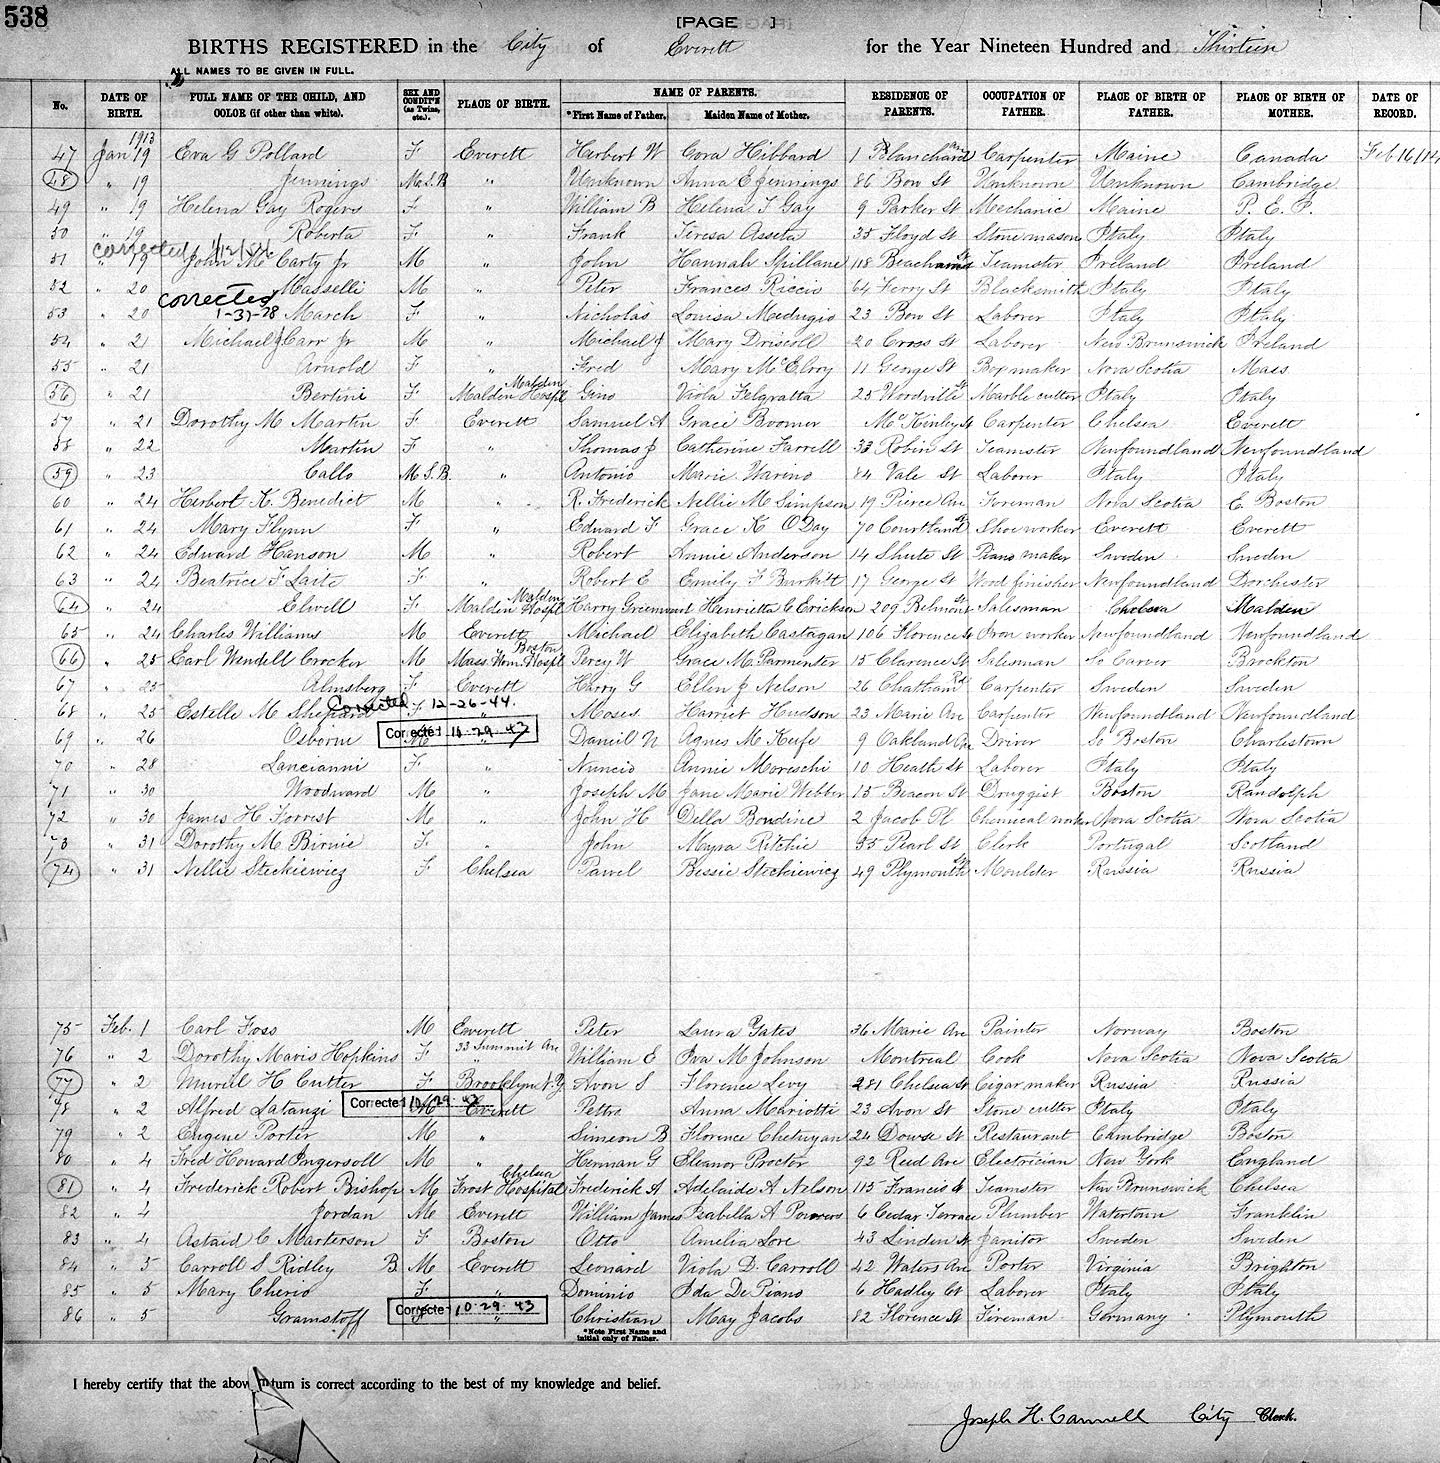 538
[PAGE ]
BIRTHS REGISTERED in the City of Everett for the Year Nineteen Hundred and Thirteen
ALL NAMES TO BE GIVEN IN FULL.
No. DATE OF BIRTH. FULL NAME OF THE CHILD, AND COLOR (if other than white). SEX AND CONDIT'N (as Twins, etc.). PLACE OF BIRTH. NAME OF PARENTS. *First Name of Father. Maiden Name of Mother. RESIDENCE OF PARENTS. OCCUPATION OF FATHER. PLACE OF BIRTH OF FATHER. PLACE OF BIRTH OF MOTHER. DATE OF RECORD.
1913
47 Jan 19 Eva G Pollard F Everett Herbert W Cora Hibbard 1 Blanchard Ave Carpenter Maine Canada Feb 16/14
48 " 19 Jennings M. S. B " Unknown Anna E Jennings 86 Bow St Unknown Unknown Cambridge
49 " 19 Helena Gay Rogers F " William B Helena T Gay 9 Parker St Mechanic Maine P. E. I.
50 " 19 Roberta F " Frank Teresa Asseta 35 Floyd St Stone mason Italy Italy
corrected 1/12/54
51 " 19 John Mc Carty Jr M " John Hannah Spillane 118 Beacham St Teamster Ireland Ireland
52 " 20 Masselli M " Peter Frances Riccio 64 Ferry St Blacksmith Italy Italy
corrected 1-31-78
53 " 20 March F " Nicholas Louisa Medugio 23 Bow St Laborer Italy Italy
54 " 21 Michael J Carr Jr M " Michael J Mary Driscoll 20 Cross St Laborer New Brunswick Ireland
55 " 21 Arnold F " Fred Mary McElroy 11 George St Box maker Nova Scotia Mass
56 " 21 Bertini F Malden Hospl Malden Gino Viola Felgratta 25 Woodville St Marble cutter Italy Italy
57 " 21 Dorothy M Martin F Everett Samuel A Grace Boomer McKinley St Carpenter Chelsea Everett
58 " 22 Martin F Thomas J Catherine Farrell 33 Robin St Teamster Newfoundland Newfoundland
59 " 23 Callo M. S. B. " Antonio Marie Warino 84 Vale St Laborer Italy Italy
60 " 24 Herbert K. Benedict M " R. Frederick Nellie M Simpson 19 Pierce Ave Foreman Nova Scotia E. Boston
61 " 24 Mary Flynn F " Edward F Grace K O'Day 70 Courtland St Shoe worker Everett Everett
62 " 24 Edward Hanson M " Robert Annie Anderson 14 Shute St Piano maker Sweden Sweden
63 " 24 Beatrice F Laite F " Robert E Emily F Burkitt 17 George St Wood finisher Newfoundland Dorchester
64 " 24 Elwell F Malden Hospl Malden Harry Greenwood Henrietta C Erickson 209 Belmont St Salesman Chelsea Malden
65 " 24 Charles Williams M Everett Michael Elizabeth Castagan 106 Florence St Iron worker Newfoundland Newfoundland
66 " 25 Earl Wendell Crocker M Mass. Hom. Hospl Boston Percy W Grace M. Parmenter 15 Clarence St Salesman So Carver Brockton
67 " 25 Almsberg F Everett Harry G Ellen J Nelson 26 Chatham Rd Carpenter Sweden Sweden
Corrected 12-26-44.
68 " 25 Estelle M Sheppard F " Moses Harriet Hudson 23 Marie Ave Carpenter Newfoundland Newfoundland
69 " 26 Osborne Corrected 10-29-43 M " Daniel N Agnes M Keefe 9 Oakland Ave Driver So Boston Charlestown
70 " 28 Lancianni F " Nuncio Annie Moreschi 10 Heath St Laborer Italy Italy
71 " 30 Woodward M " Joseph M Jane Marie Webber 15 Beacon St Druggist Boston Randolph
72 " 30 James H Forrest M " John H Della Boudine 2 Jacob Pl Chemical worker Nova Scotia Nova Scotia
73 " 31 Dorothy M Birnie F " John Myra Ritchie 35 Pearl St Clerk Portugal Scotland
74 " 31 Nellie Steckiewicz F Chelsea Pawel Bessie Steckiewicz 49 Plymouth St Moulder Russia Russia
75 Feb. 1 Carl Foss M Everett Peter Laura Yates 36 Marie Ave Painter Norway Boston
76 " 2 Dorothy Mavis Hopkins F 33 Summit Ave " William E Iva M Johnson Montreal Cook Nova Scotia Nova Scotia
77 " 2 Muriel H Cutter F Brooklyn N.Y Avon S Florence Levy 281 Chelsea St Cigar maker Russia Russia
78 " 2 Alfred Latanzi Corrected 10-29-43 M Everett Petro Anna Mariotti 23 Avon St Stone cutter Italy Italy
79 " 2 Eugene Porter M " Simeon B Florence Chetwynn 24 Dowse St Restaurant Cambridge Boston
80 " 4 Fred Howard Ingersoll M " Herman G Eleanor Proctor 92 Reed Ave Electrician New York England
81 " 4 Frederick Robert Bishop M Frost Hospital Chelsea Frederick A Adelaide A Nelson 115 Francis St Teamster New Brunswick Chelsea
82 " 4 Jordan M Everett William James Isabella A Powers 6 Cedar Terrace Plumber Watertown Franklin
83 " 4 Astaid C Marterson F Boston Otto Amelia Lore 43 Linden St Janitor Sweden Sweden
84 " 5 Carroll S Ridley B M Everett Leonard Viola D. Carroll 42 Waters Ave Porter Virginia Brighton
85 " 5 Mary Cherio F " Dominio Ida De Piano 6 Hadley Ct Laborer Italy Italy
86 " 5 Gramstoff Corrected 10-29-43 " Christian May Jacobs 82 Florence St Fireman Germany Plymouth
*Note First Name and initial only of Father.
I hereby certify that the above return is correct according to the best of my knowledge and belief.
Joseph H. Cannell City Clerk.